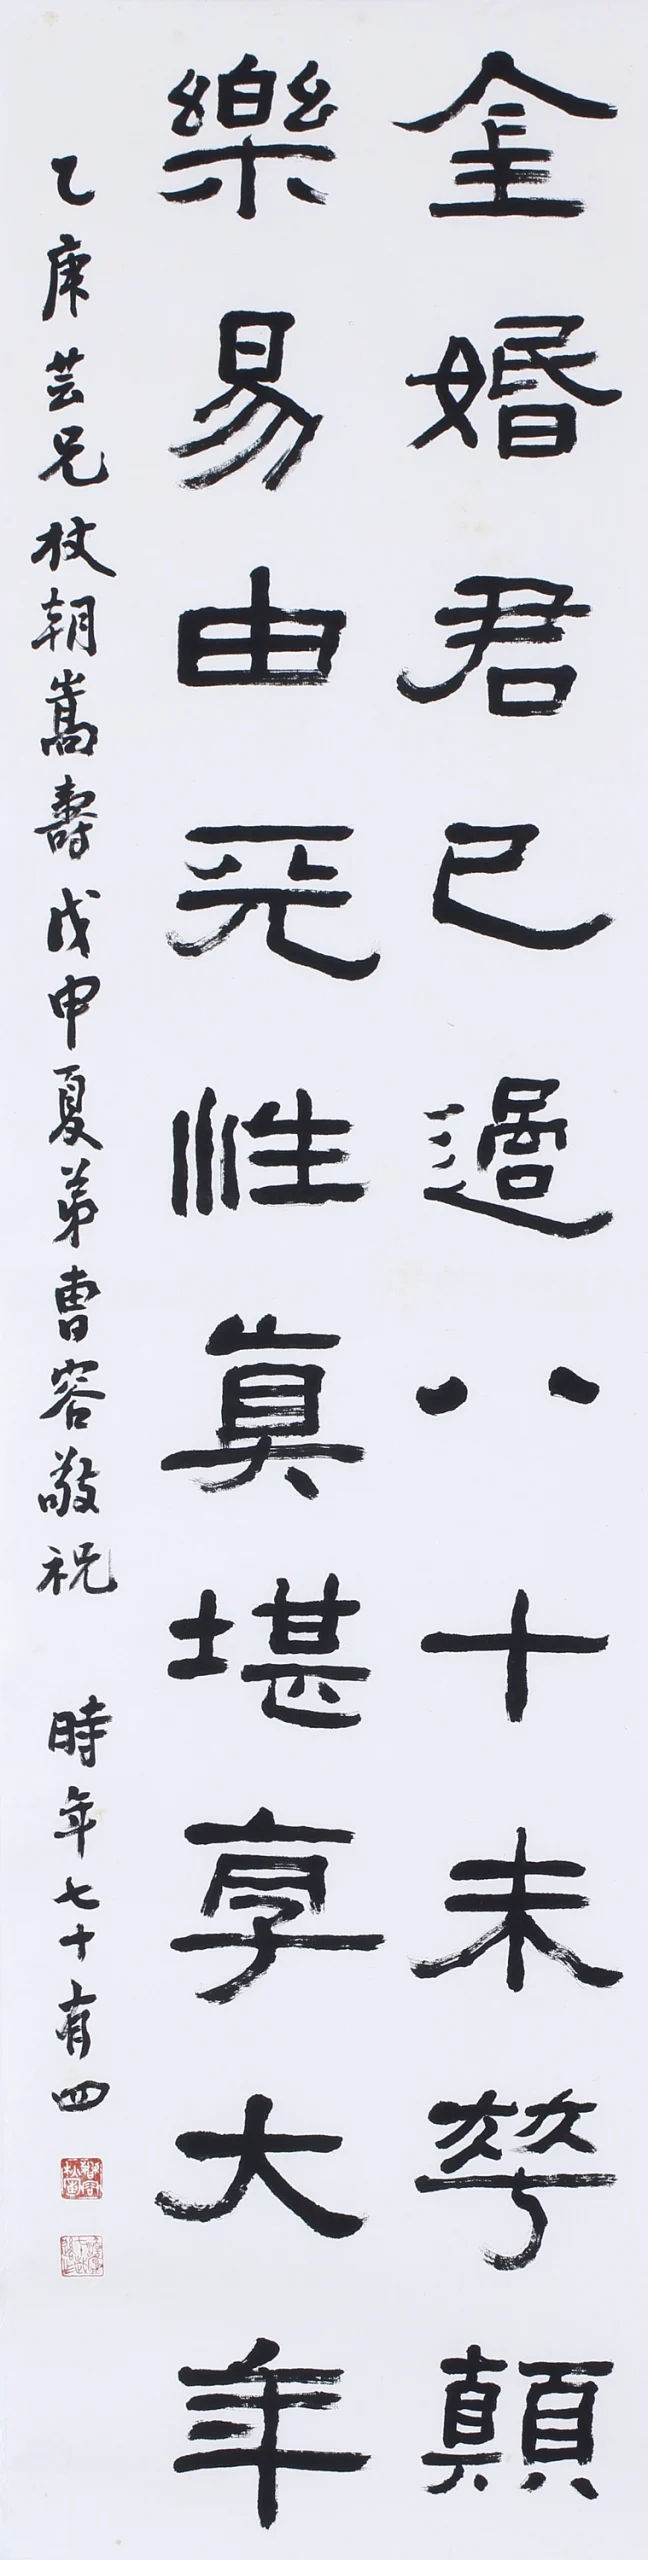 金婚君已過八十未華顛
樂易由天性真堪享大年
乙庚芸兄杖朝嵩壽戊申夏弟曹容敬祝 時年七十有四